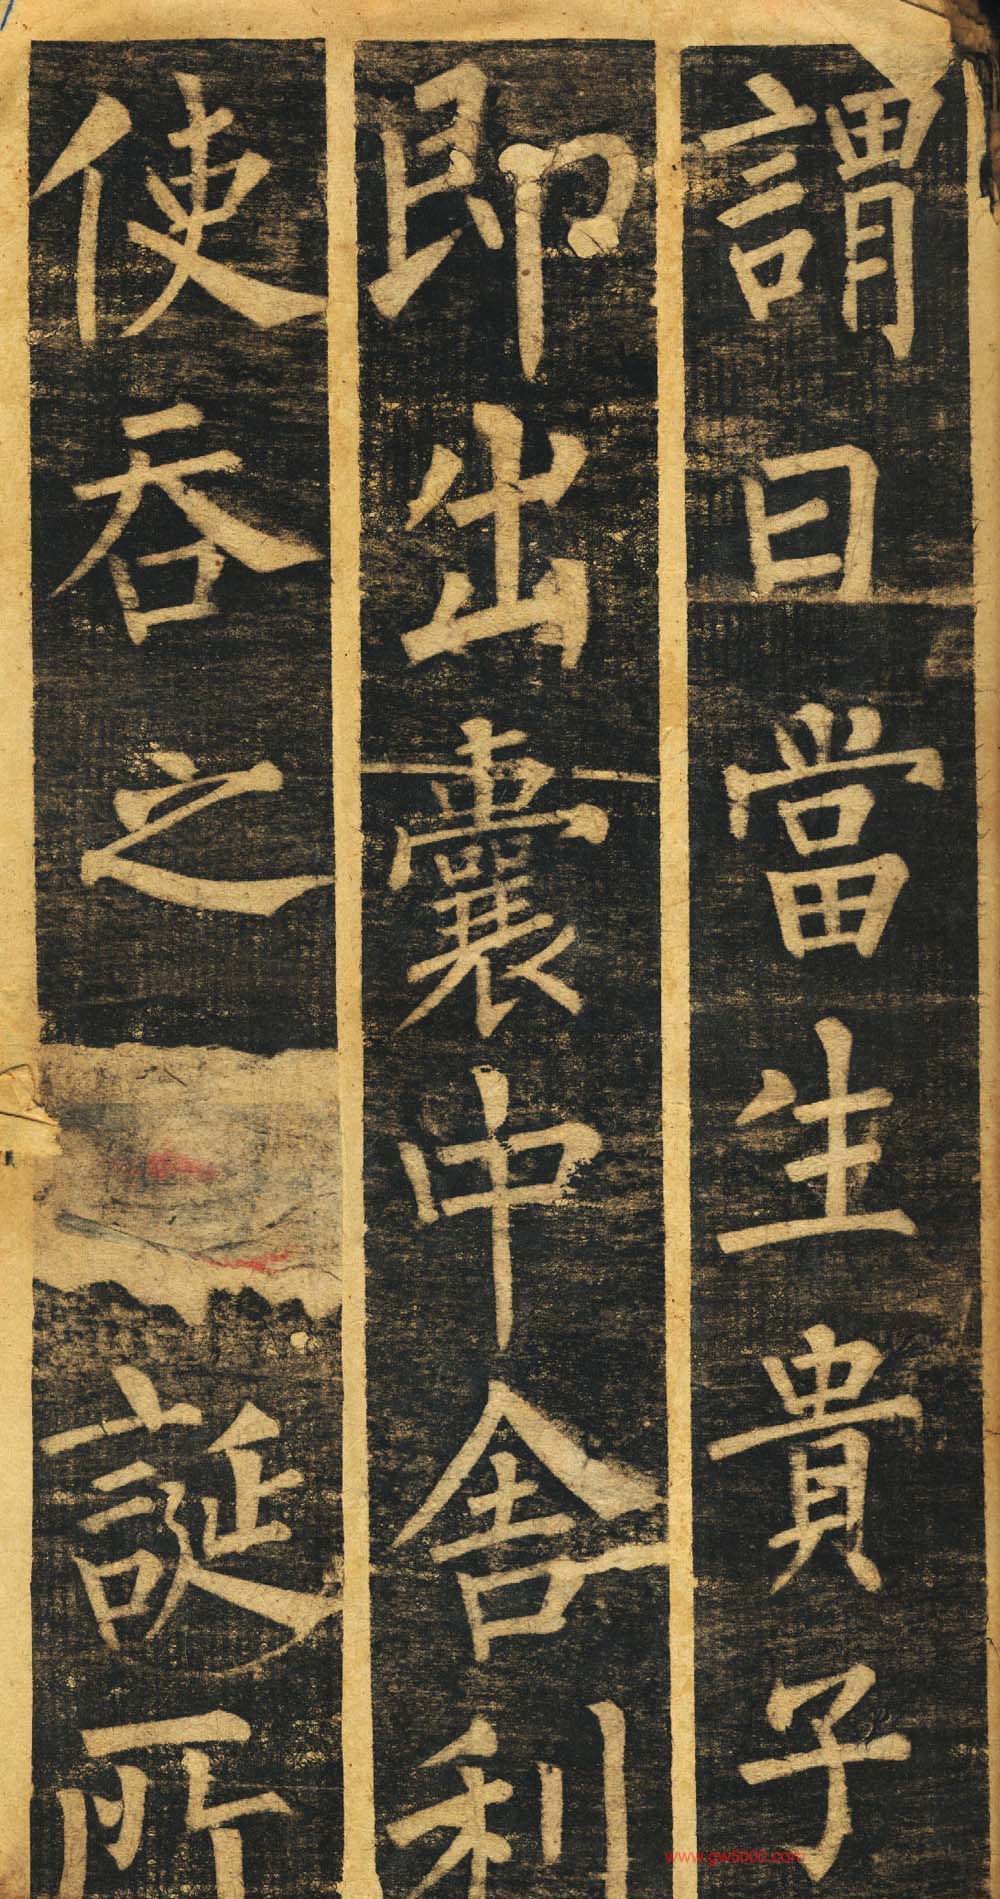 謂曰當生貴子
即出囊中舍利
使吞之誕所
www.gw5000.com